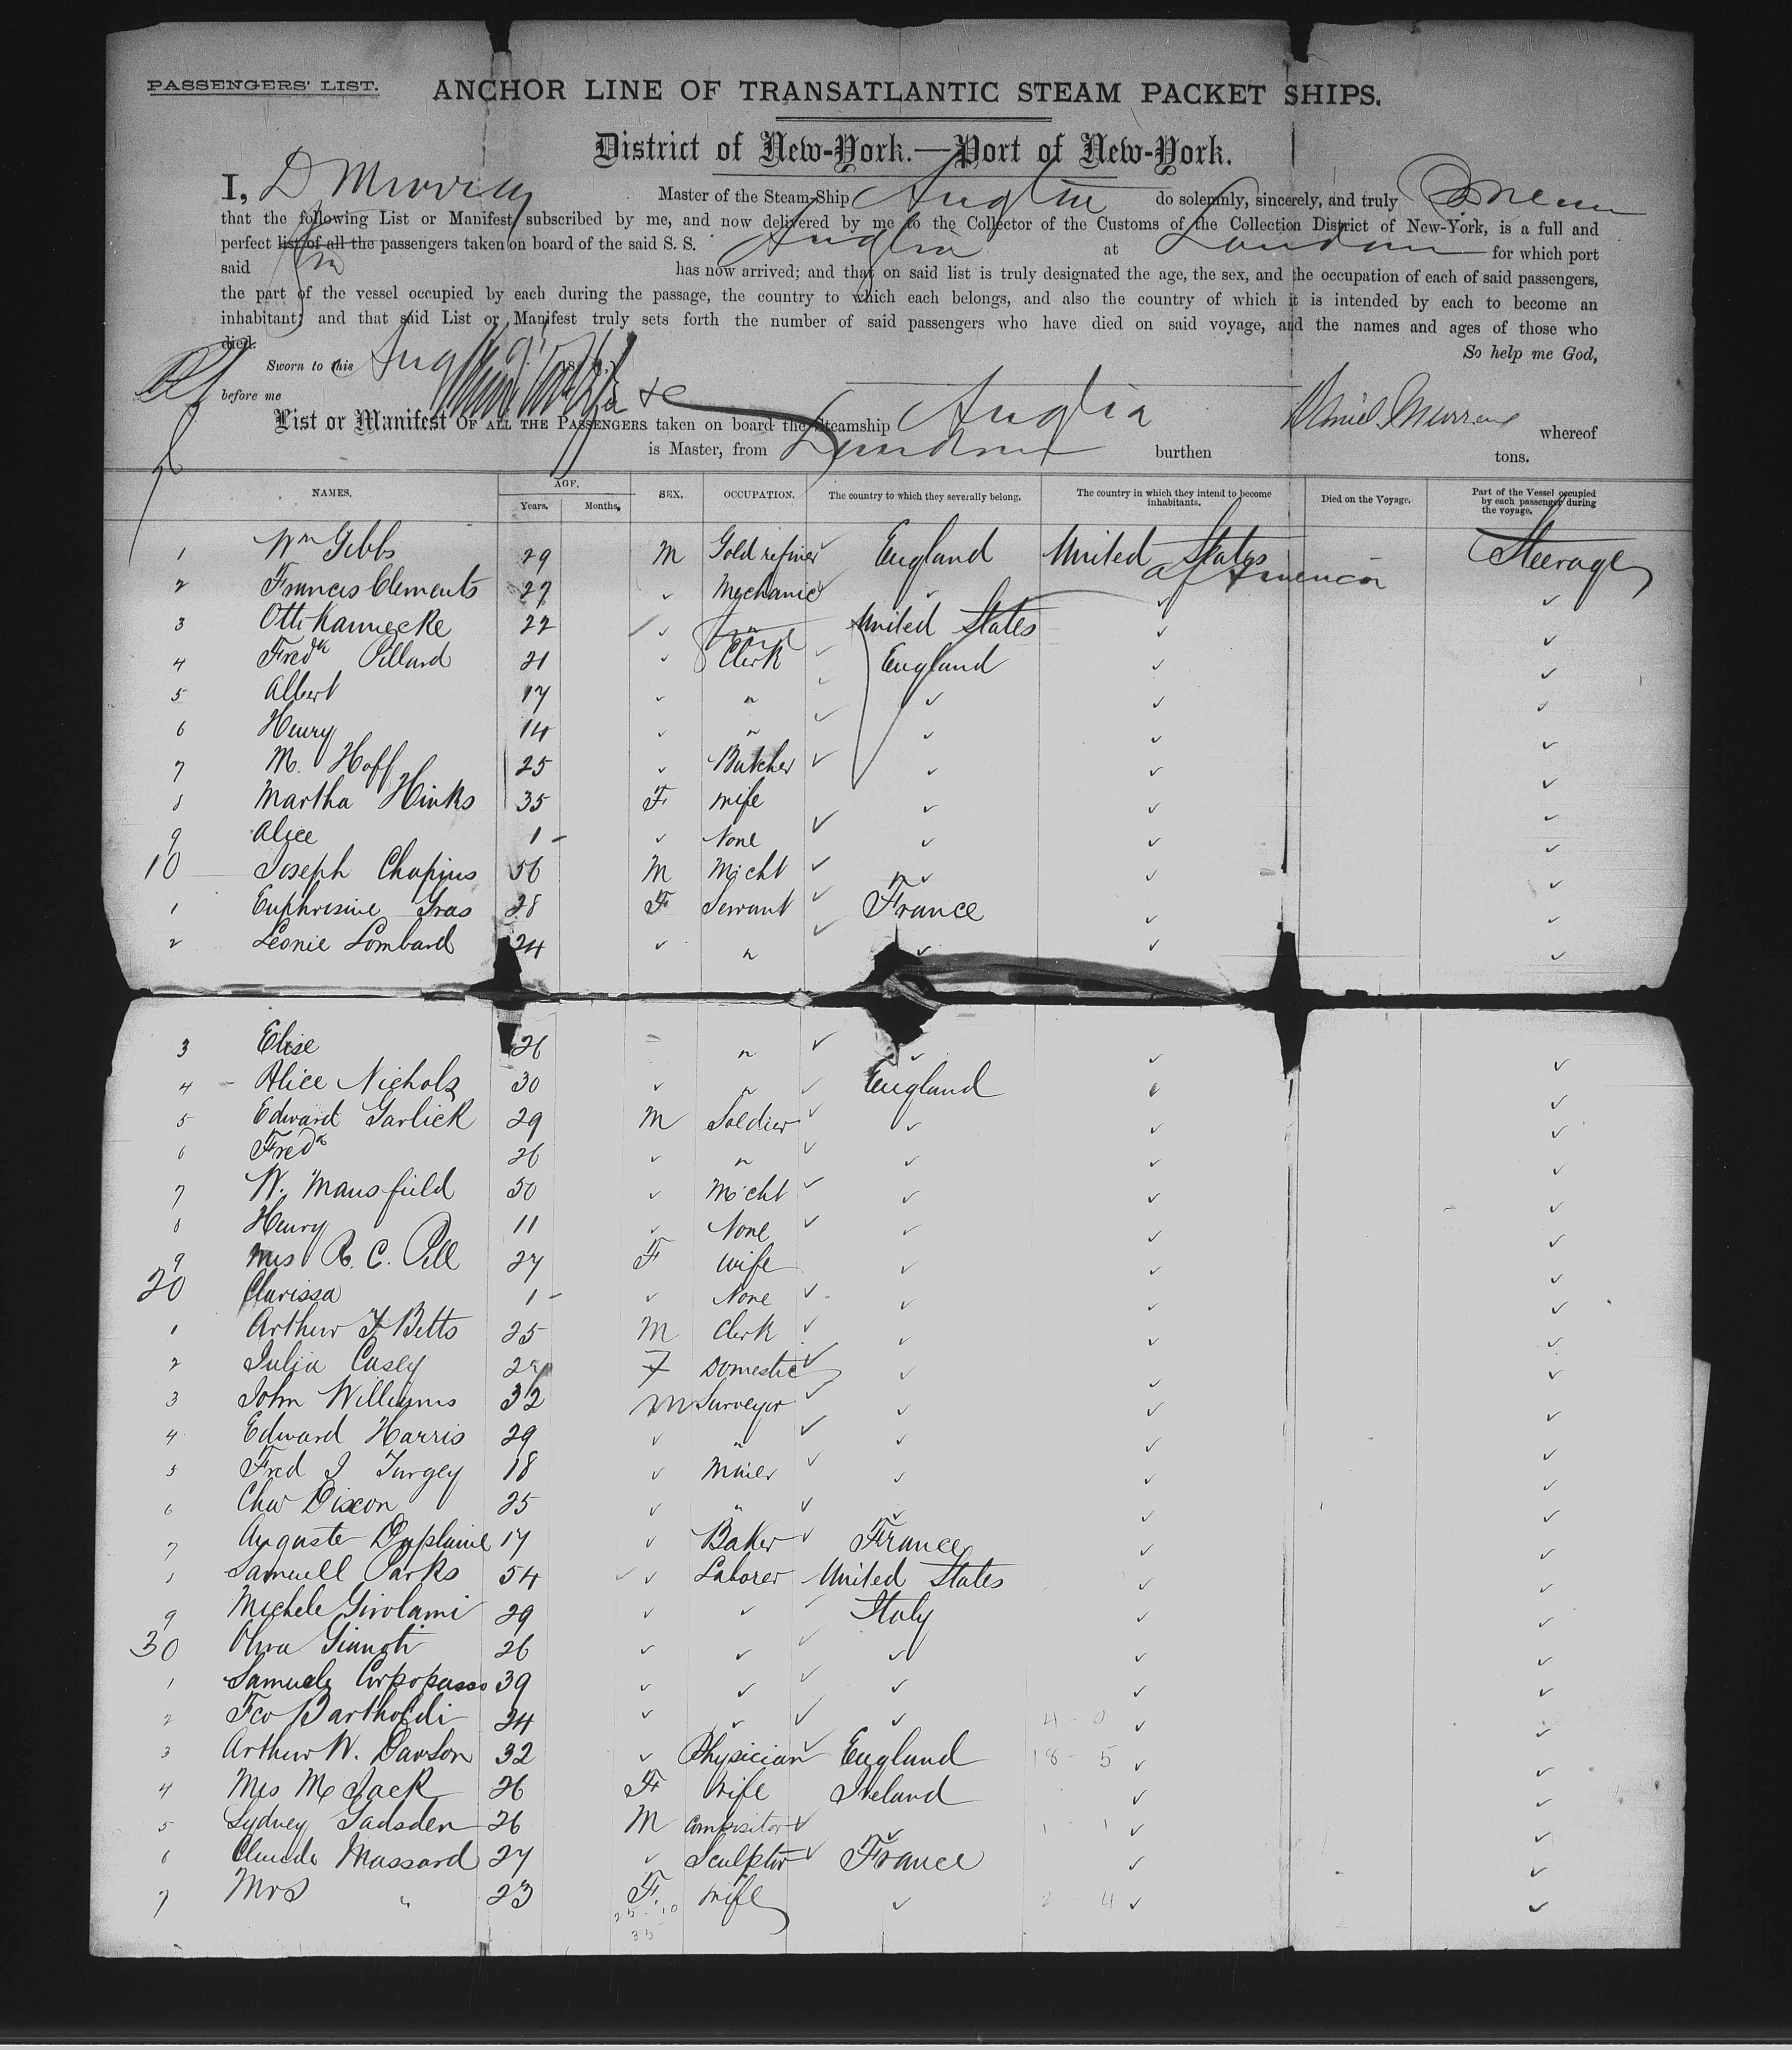 PASSENGERS' LIST.
ANCHOR LINE OF TRANSATLANTIC STEAM PACKET SHIPS.
District of New-York.—Port of New-York.
I, D Murray Master of the Steam-Ship Anglia do solemnly, sincerely, and truly
that the following List or Manifest subscribed by me, and now delivered by me to the Collector of the Customs of the Collection District of New-York, is a full and
perfect list of all the passengers taken on board of the said S. S. Anglia at London for which port
said has now arrived; and that on said list is truly designated the age, the sex, and the occupation of each of said passengers,
the part of the vessel occupied by each during the passage, the country to which each belongs, and also the country of which it is intended by each to become an
inhabitant; and that said List or Manifest truly sets forth the number of said passengers who have died on said voyage, and the names and ages of those who
died. So help me God,
Sworn to this Aug
before me
List or Manifest OF ALL THE PASSENGERS taken on board the Steamship Anglia Daniel Murray whereof
is Master, from London burthen tons.
NAMES. AGE. Years. Months. SEX. OCCUPATION. The country to which they severally belong. The country in which they intend to become inhabitants. Died on the Voyage. Part of the Vessel occupied by each passenger during the voyage.
1 Wm Gibbs 29 M Gold refiner England United States of America - Steerage
2 Francis Clements 27 ✓ Mechanic ✓ ✓ ✓
3 Otti Kannecke 22 ✓ " United States ✓ ✓
4 Fredk Pillard 21 ✓ Clerk England ✓ ✓
5 Albert 17 ✓ " ✓ ✓ ✓
6 Henry 14 ✓ " ✓ ✓ ✓
7 M. Hoff 25 ✓ Butcher ✓ ✓ ✓
8 Martha Hinks 35 F wife ✓ ✓ ✓
9 Alice 1 - ✓ None ✓ ✓ ✓
10 Joseph Chapius 56 M Mcht " ✓ ✓ ✓
1 Euphrisine Gras 28 F Servant France ✓ ✓
2 Leonie Lombard 24 ✓ " ✓ ✓ ✓
3 Elise 26 " ✓ ✓ ✓
4 Alice Nichols 30 ✓ " England ✓ ✓
5 Edward Garlick 29 M Soldier ✓ ✓ ✓
6 Fredk 26 ✓ " ✓ ✓ ✓
7 W. Mansfield 50 ✓ Mcht ✓ ✓ ✓
8 Henry 11 ✓ None ✓ ✓ ✓
9 Mrs R. C. Pell 27 F wife ✓ ✓ ✓
20 Clarissa 1 - ✓ None ✓ ✓ ✓
1 Arthur F Betts 25 M Clerk ✓ ✓ ✓
2 Julia Casey F Domestic ✓ ✓ ✓
3 John Williams 32 M Surveyor ✓ ✓ ✓
4 Edward Harris 29 ✓ " ✓ ✓ ✓
5 Fred J Turgey 18 ✓ Miner ✓ ✓ ✓
6 Chas Dixon 25 ✓ " ✓ ✓ ✓
7 Auguste Duplaine 17 ✓ Baker France ✓ ✓
8 Samuell Parks 54 ✓ Laborer United States ✓ ✓
9 Michele Girolami 29 ✓ ✓ Italy ✓ ✓
30 Oliva Giannoti 26 ✓ ✓ ✓ ✓ ✓
1 Samuele Corpopasso 39 ✓ ✓ ✓ ✓ ✓
2 Fco Bartholdi 24 ✓ ✓ ✓ 4 - 0 ✓ ✓
3 Arthur W. Dawson 32 ✓ Physician England 18 - 5 ✓ ✓
4 Mrs M Jack 26 F Wife Ireland ✓ ✓
5 Sydney Gadsden 26 M Compositor 1 1 ✓ ✓
6 Claude Massard 27 ✓ Sculptor France ✓ ✓
7 Mrs " 23 F. wife ✓ 2 4 ✓ ✓
25 - 10
35